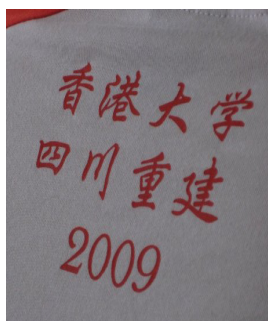 香港大学
四川重建
2009